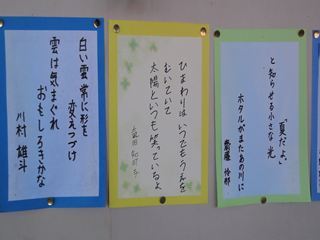 白い雲常に形を
変えつづけ
雲は気まぐれ
おもしろきかな
川村 雄斗
ひまわりはいつでもうえを
むいていて
太陽といつも笑っているよ
「夏だよ。」
と知らせる小さな光
ホタルがまたあう川に